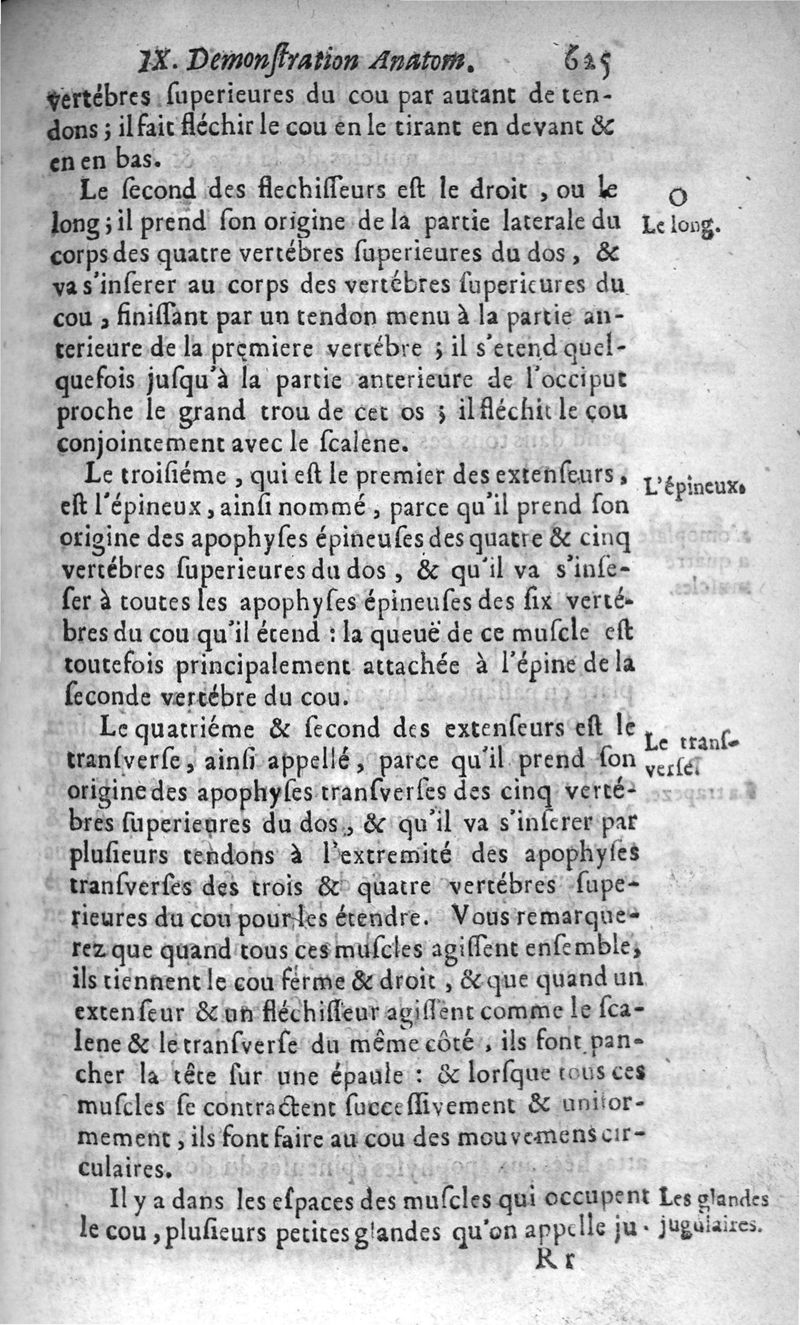 IX. Demonſtration Anatom. 625
vertébres ſuperieures du cou par autant de ten-
dons ; il fait fléchir le cou en le tirant en devant &
en en bas.
Le ſecond des flechiſſeurs eſt le droit , ou le
O
long ; il prend ſon origine de la partie laterale du
Le long.
corps des quatre vertébres ſuperieures du dos , &
va s'inſerer au corps des vertébres ſuperieures du
cou , finiſſant par un tendon menu à la partie an-
terieure de la premiere vertébre ; il s'etend quel-
quefois juſqu'à la partie anterieure de l'occiput
proche le grand trou de cet os ; il fléchit le cou
conjointement avec le ſcalene.
Le troiſiéme , qui eſt le premier des extenſeurs ,
L'épineux.
eſt l'épineux , ainſi nommé , parce qu'il prend ſon
origine des apophyſes épineuſes des quatre & cinq
vertébres ſuperieures du dos , & qu'il va s'inſe-
ſer à toutes les apophyſes épineuſes des ſix verté-
bres du cou qu'il étend : la queuë de ce muſcle eſt
toutefois principalement attachée à l'épine de la
ſeconde vertébre du cou.
Le quatriéme & ſecond des extenſeurs eſt le
Le tranſ-
tranſverſe , ainſi appellé , parce qu'il prend ſon
verſe.
origine des apophyſes tranſverſes des cinq verté-
bres ſuperieures du dos , & qu'il va s'inſerer par
pluſieurs tendons à l'extremité des apophyſes
tranſverſes des trois & quatre vertébres ſupe-
rieures du cou pour les étendre. Vous remarque-
rez que quand tous ces muſcles agiſſent enſemble,
ils tiennent le cou ferme & droit , & que quand un
extenſeur & un fléchiſſeur agiſſent comme le ſca-
lene & le tranſverſe du même côté , ils font pan-
cher la tête ſur une épaule : & lorſque tous ces
muſcles ſe contractent ſucceſſivement & unifor-
mement , ils font faire au cou des mouvemens cir-
culaires.
Il y a dans les eſpaces des muſcles qui occupent
Les glandes
le cou , pluſieurs petites glandes qu'on appelle ju-
jugulaires.
R r